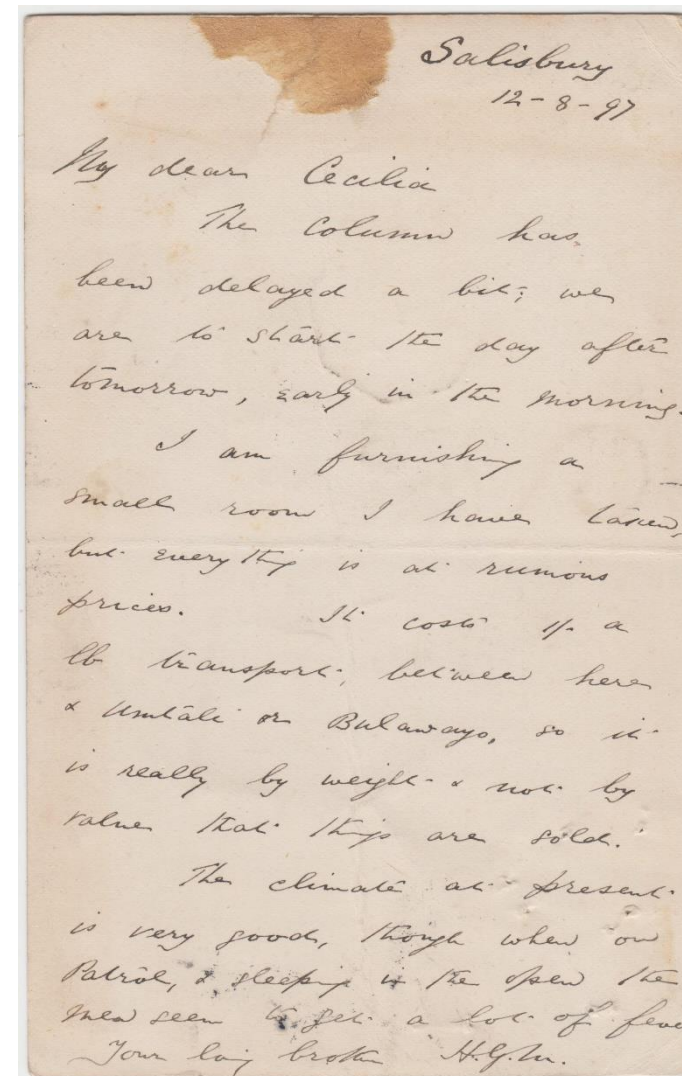 Salisbury
12-8-97
My dear Cecilia
The Column has
been delayed a bit; we
are to start the day after
tomorrow, early in the morning.
I am furnishing a
small room I have taken,
but everything is at ruinous
prices. It costs 1/- a
lb transport, between here
& Umtali or Bulawayo, so it
is really by weight & not by
value that things are sold.
The climate at present
is very good, though when on
Patrol, & sleeping in the open the
men seem to get a lot of feve
Your lovg brother H.G.M.